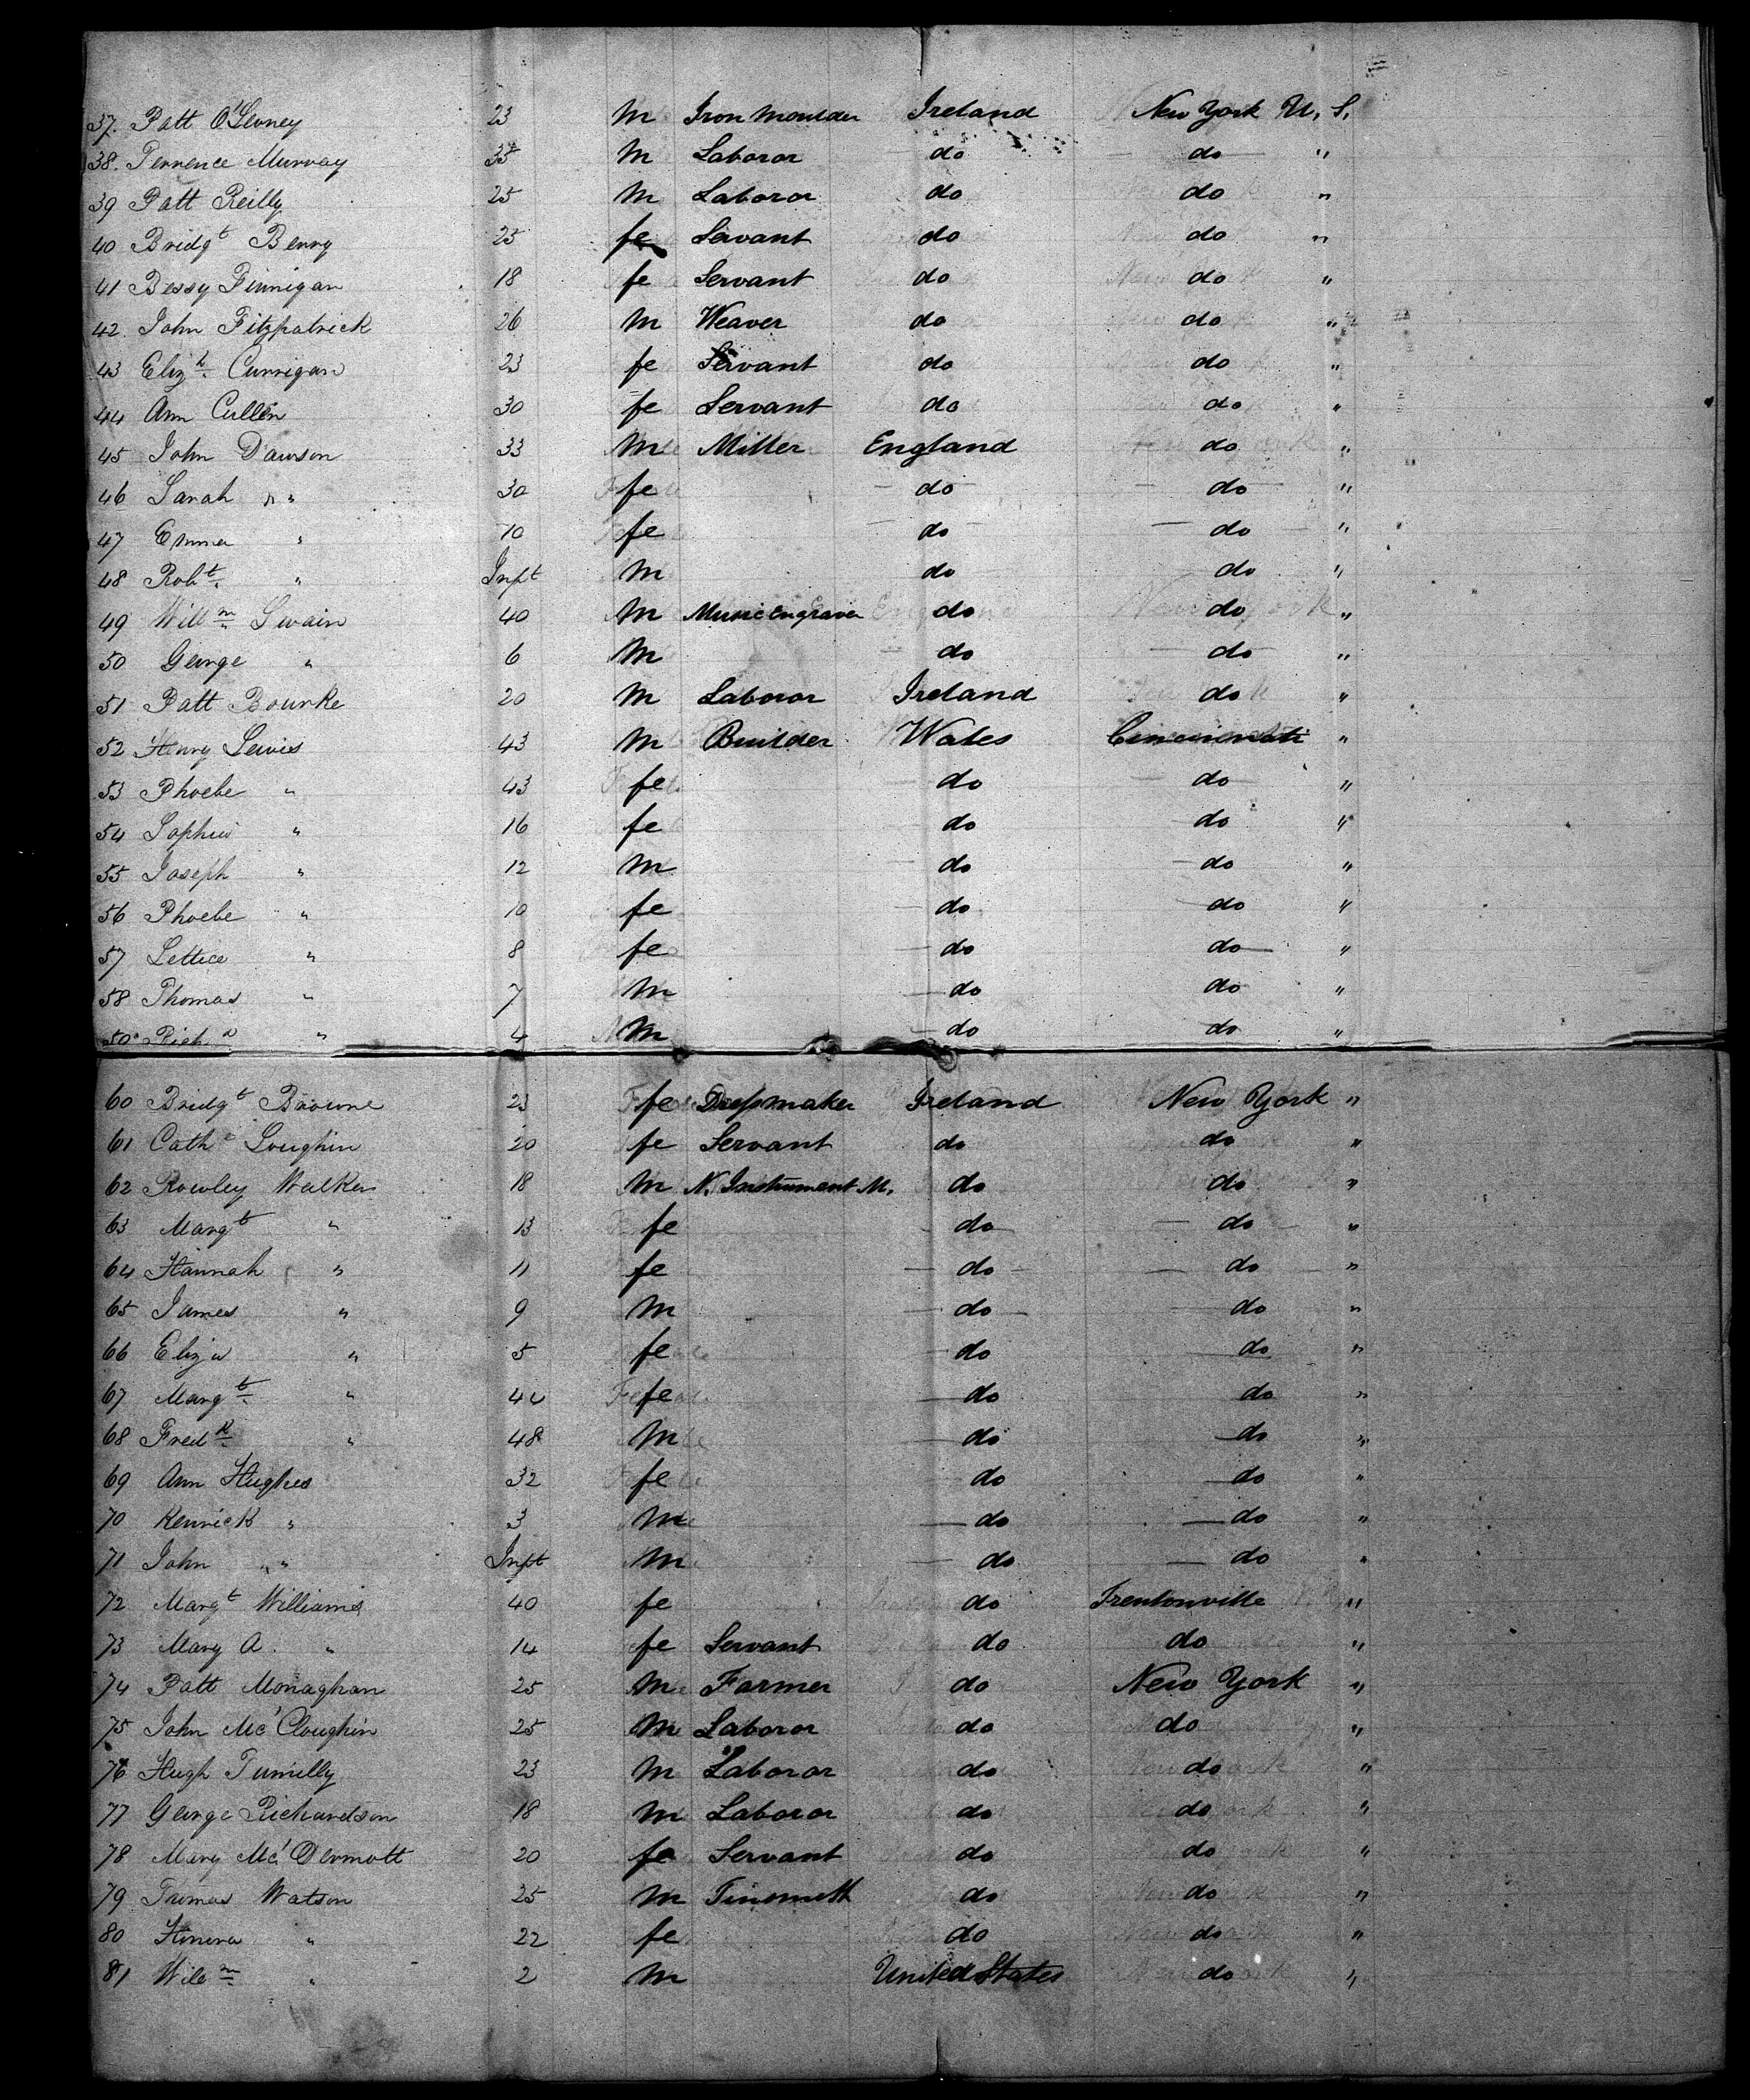 37. Patt O'Levney 23 M Iron Moulder Ireland New York U. S.
38. Terrence Murray 35 M Laboror do do "
39 Patt Reilly 25 M Laboror do do "
40 Bridgt Berry 25 fe Servant do do "
41 Bessy Finnigan 18 fe Servant do do "
42. John Fitzpatrick 26 M Weaver do do "
43 Elizh. Currigan 23 fe Servant do do "
44 Ann Cullen 30 fe Servant do do "
45 John Dawson 33 M Miller England do "
46 Sarah " " 30 fe do do "
47 Emma " 10 fe do do "
48 Robt. " Inft M do do "
49 Willm. Swain 40 M Music Engraver do do "
50 George " 6 M do do "
51 Patt Bourke 20 M Laboror Ireland do "
52 Henry Lewis 43 M Builder Wales Cincinnati "
53 Phoebe " 43 fe do do "
54 Sophia " 16 fe do do "
55 Joseph " 12 M do do "
56 Phoebe " 10 fe do do "
57 Lettice " 8 fe do do "
58 Thomas " 7 M do do "
59 Richd " 4 M do do "
60 Bridgt Browne 23 fe Dressmaker Ireland New York "
61 Cathe Loughin 20 fe Servant do do "
62 Rowley Walker 18 M N. Instrument M. do do "
63 Margt " 13 fe do do "
64 Hannah " 11 fe do do "
65 James " 9 M do do "
66 Eliza " 5 fe do do "
67 Margt. " 40 fe do do "
68 Fredk. " 48 M do do "
69 Ann Hughes 32 fe do do "
70 Kenrick " 3 M do do "
71 John " " Inft M do do "
72 Margt Williams 40 fe do Trentonville "
73 Mary A. " 14 fe Servant do do "
74 Patt Monaghan 25 M Farmer do New York "
75 John Mc'Cloughin 25 M Laboror do do "
76 Hugh Tumilly 23 M Laboror do do "
77 George Richardson 18 M Laboror do do "
78 Mary Mc'Dermott 20 fe Servant do do "
79 Thomas Watson 25 M Tinsmith do do "
80 Honora " 22 fe do do "
81 Willm. " 2 M United States do "